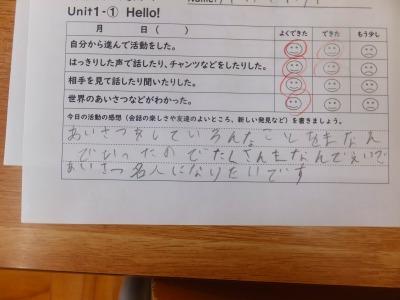 Unit1-① Hello!
月　日（　）
よくできた　できた　もう少し
自分から進んで活動をした。
はっきりした声で話したり、チャンツなどをしたりした。
相手を見て話したり聞いたりした。
世界のあいさつなどがわかった。
今日の活動の感想（会話の楽しさや友達のよいところ、新しい発見など）を書きましょう。
あいさつをしていろんなことをまなん
でいったのでたくさんまなんでえいで
あいさつ名人になりたいです